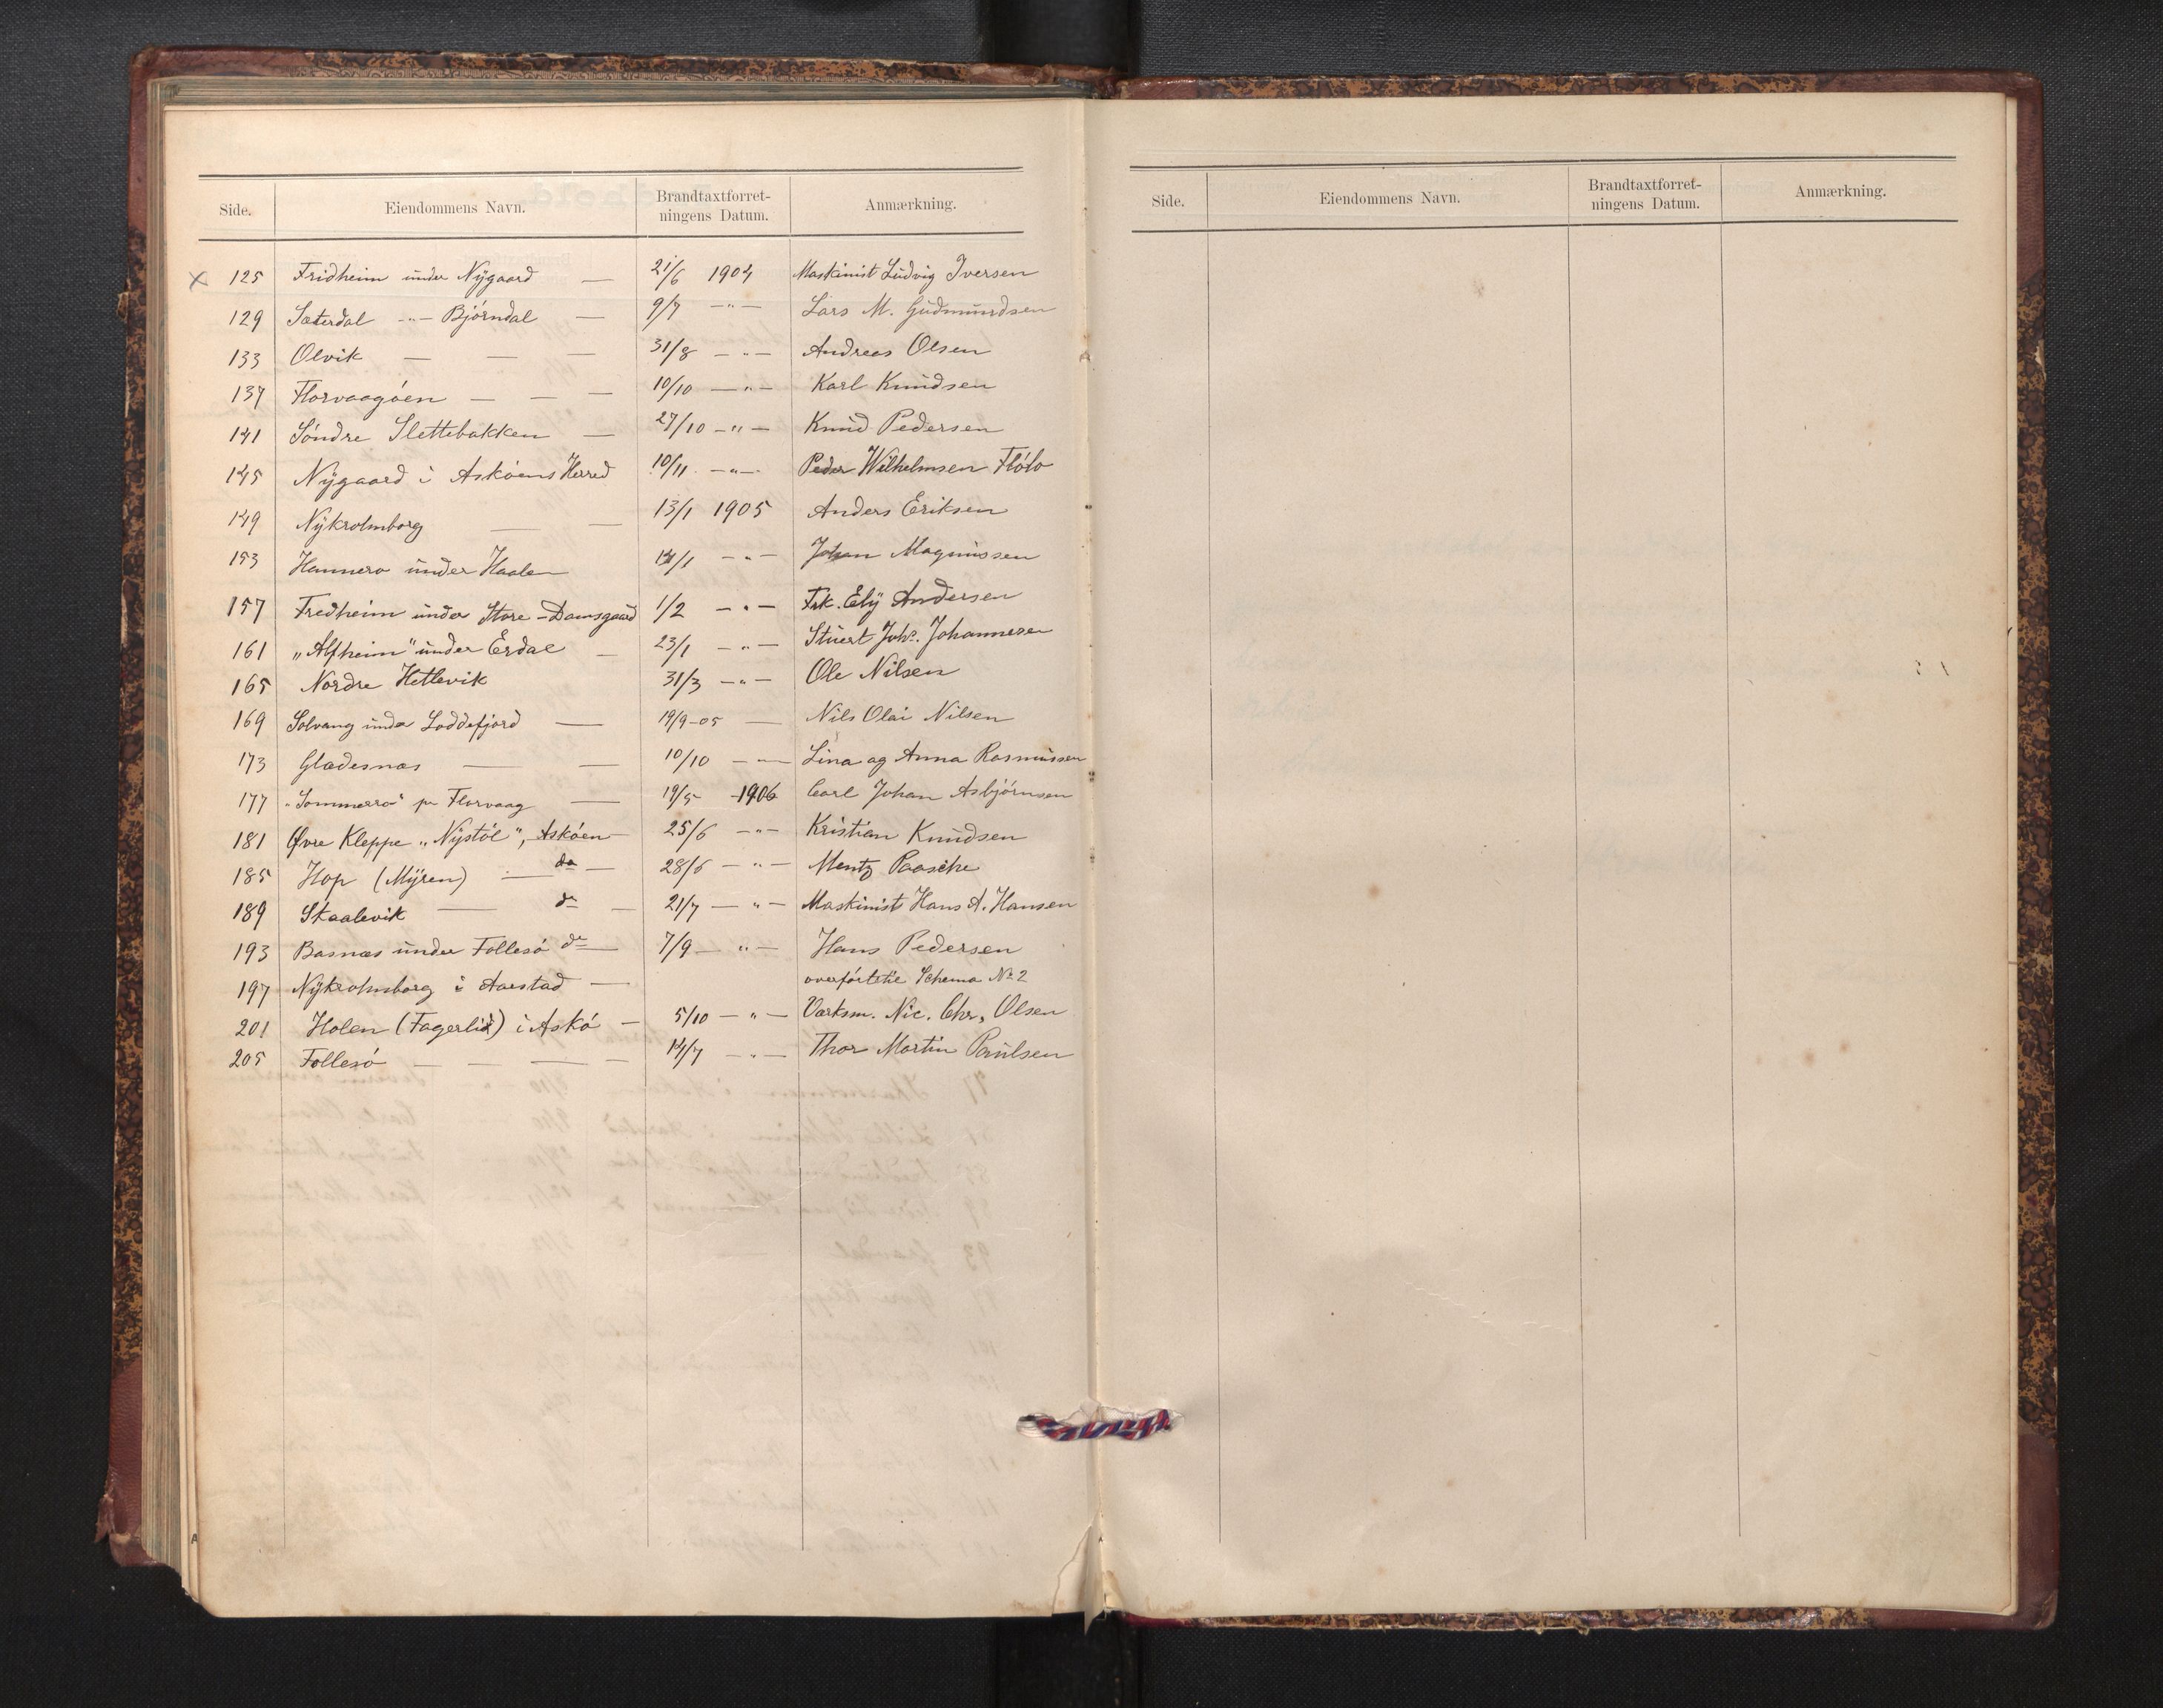 Side. Eiendommens Navn. Brandtaxtforret-ningens Datum. Anmærkning.
x 125 Fridheim under Nÿgaard — 21/6 1904 Maskinist Ludvig Iversen
129 Sæterdal -"- Bjórndal — 9/7 -"- Lars M. Gudmundsen
133 Olvik — — — 31/8 -"- Andreas Olsen
137 Florvaagóen — — — 10/10 -"- Karl Knudsen
141 Sóndre Slettebakken — 27/10 -"- Knud Pedersen
145 Nÿgaard i Askóens Herred 10/11 -"- Peder Wilhelmsen Flólo
149 Nÿkrohnborg — — 13/1 1905 Anders Eriksen
153 Hannero under Haalen 14/1 -"- Johan Magnussen
157 Fredheim under Store-Damsgaard 1/2 -"- Frk. Elÿ Andersen
161 „Alfheim" under Erdal — 23/1 -"- Stuert Johs. Johannesen
165 Nordre Hetlevik 31/3 -"- Ole Nilsen
169 Solvang under Loddefjord — 19/9-05 — Nils Olai Nilsen
173 Gladesnæs — — 10/10 -"- Lina og Anna Rasmussen
177 „Sommerro" pr Florvaag — 19/5 -1906 Carl Johan Asbjórnsen
181 Øvre Kleppe „Nÿstól", Askóen — 25/6 -"- Kristian Knudsen
185 Hop (Mÿren) — do — 28/6 -"- Mentz Paasche
189 Skaalevik — do — 21/7 -"- Maskinist Hans A. Hansen
193 Basnæs under Follesó do — 7/9 -"- Hans Pedersen
197 Nÿkrohnborg i Aarstad — overfórt til Schema No 2
201 Holen (Fagerli) i Askó — 5/10 -"- Værksm. Nic. Chr. Olsen
205 Follesó — — — 14/7 -"- Thor Martin Paulsen
Side. Eiendommens Navn. Brandtaxtforret-ningens Datum. Anmærkning.